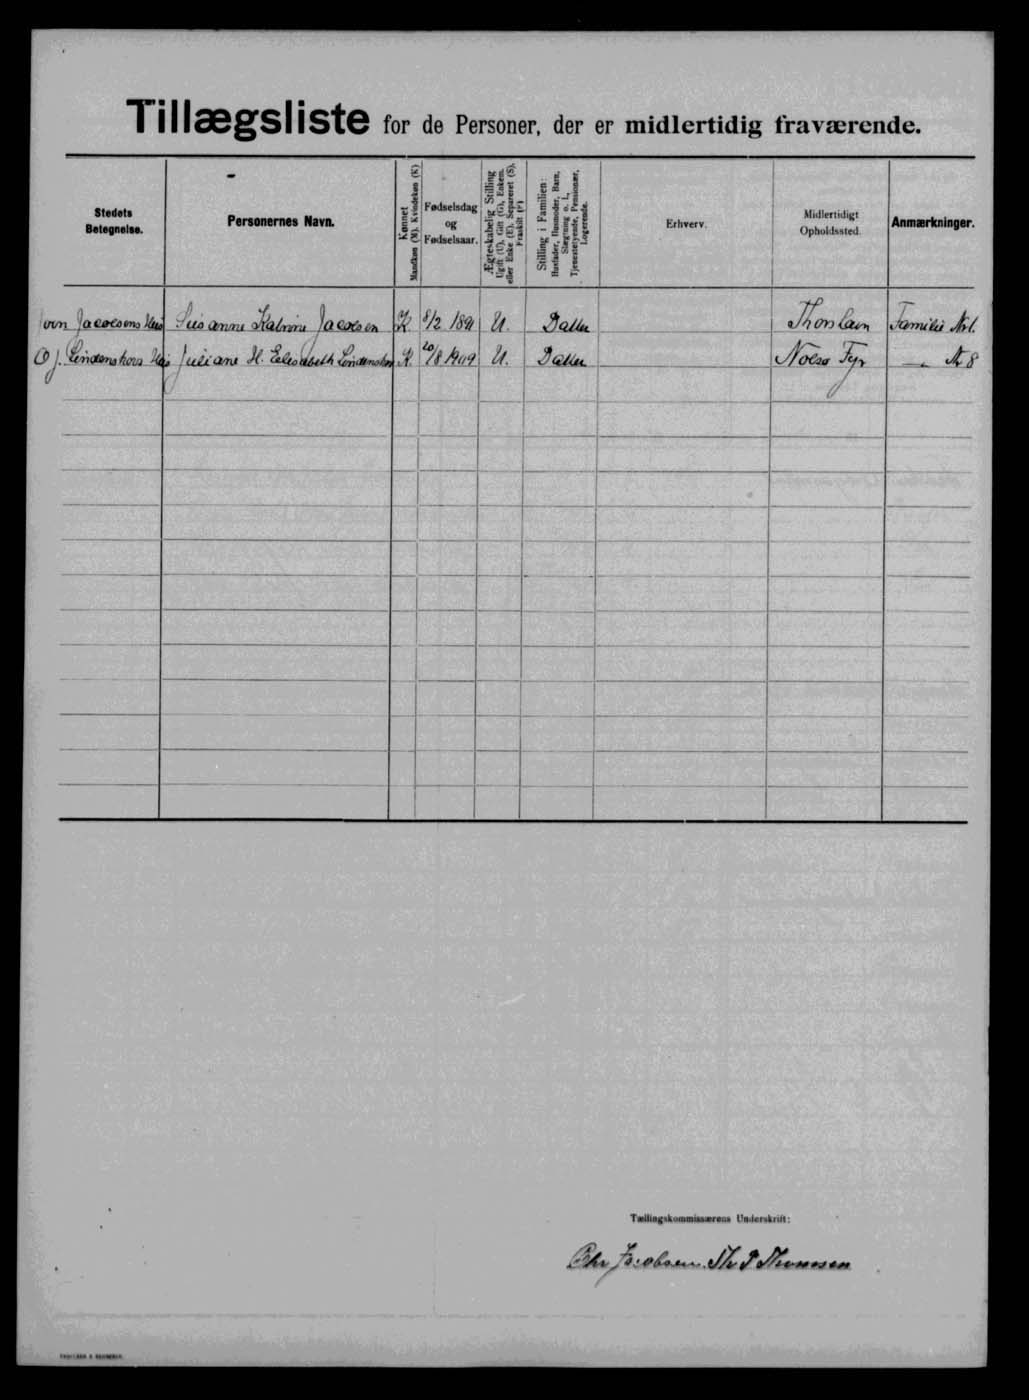 Tillægsliste for de Personer, der er midlertidig fraværende.
Stedets Betegnelse.
Personernes Navn.
Kønnet
Mandkøn (M). Kvindekøn (K)
Fødselsdag og Fødselsaar.
Ægteskabelig Stilling
Ugift (U), Gift (G), Enkem. eller Enke (E), Separeret (S), Fraskilt (F)
Stilling i Familien:
Husfader, Husmoder, Barn, Slægtning o. l., Tjenestetyende, Pensionær, Logerende.
Erhverv.
Midlertidigt Opholdssted.
Anmærkninger.
Jacobsens Hus Susanne Katrine Jacobsen K. 8/2 1891 U. Datter Thorshavn Familie Nr 1.
O J. Lindenskovs Hus Juliane H. Elisabeth Lindenskov K. 20/8 1909 U. Datter Nolsø Fyr — Nr 8
Tællingskommissærens Underskrift:
Chr Jacobsen. Th P Thomsen